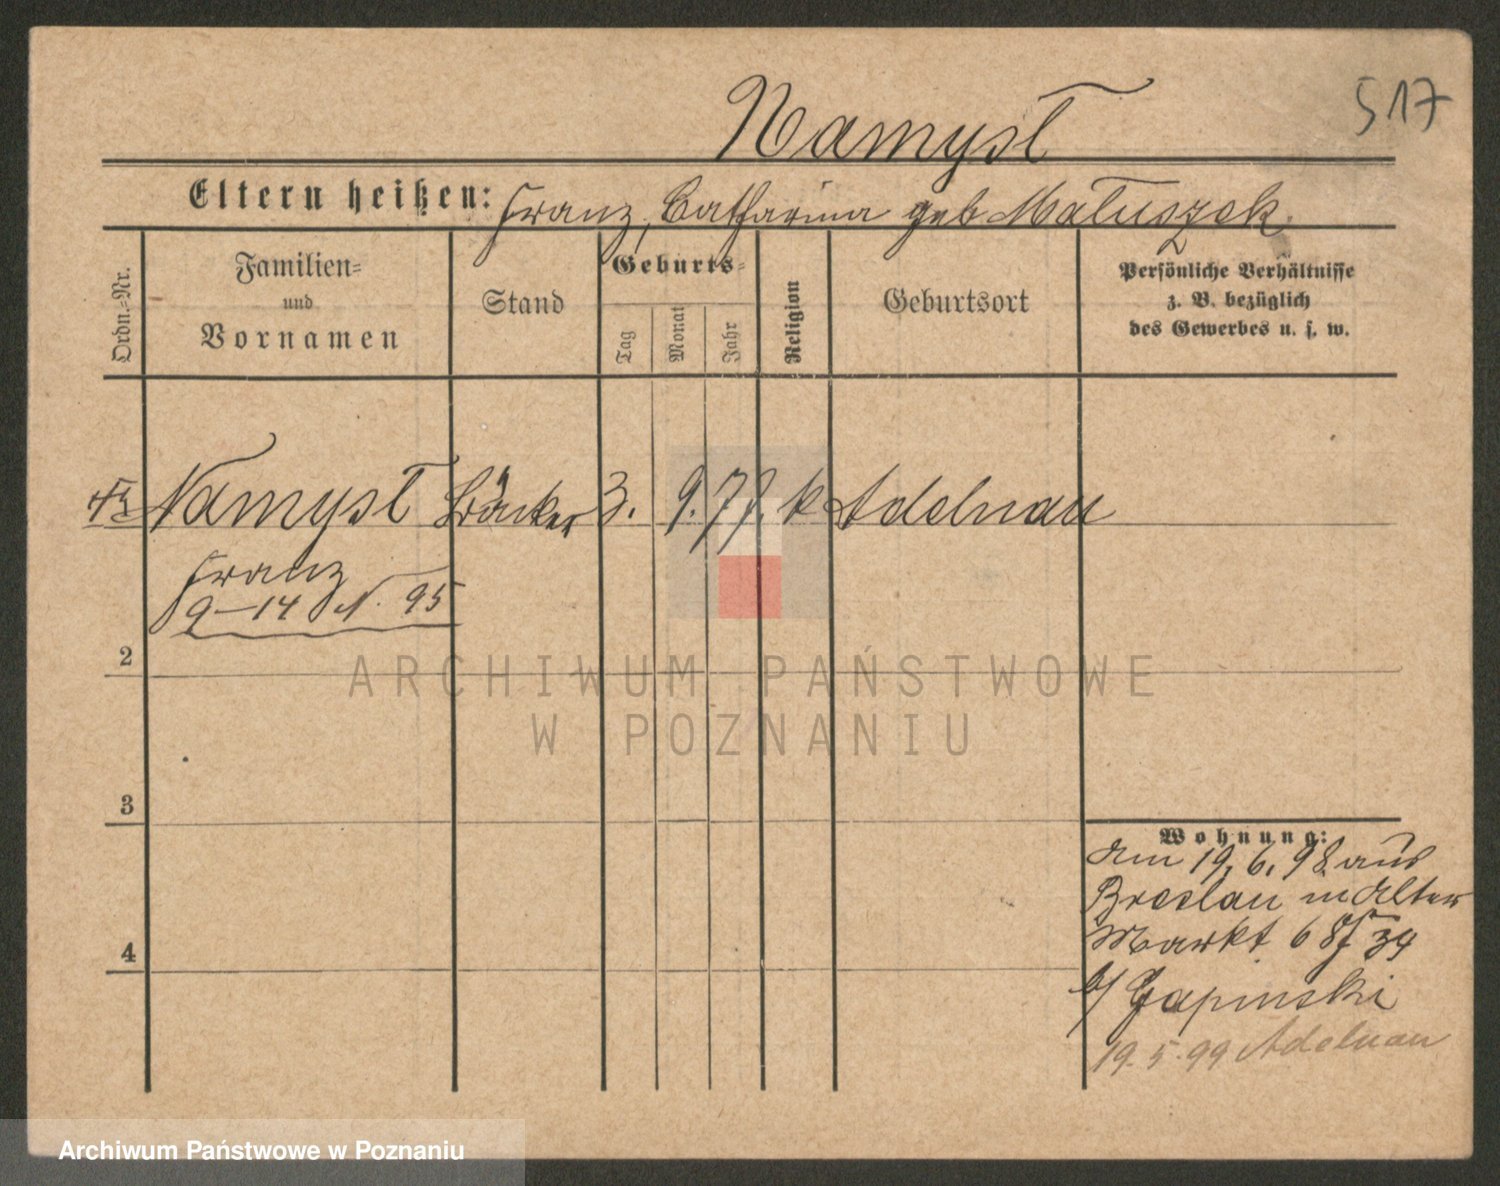 517
Namysł
Eltern heißen: Franz, Catharina geb Matuszek.
Ordn.-Nr.
Familien-
und
Vornamen
Stand
Geburts-
Tag
Monat
Jahr
Religion
Geburtsort
Persönliche Verhältnisse
z. B. bezüglich
des Gewerbes u. s. w.
Namysł Bäcker 3. 9. 77. k Adelnau
Franz
9-14 N. 95
2
3
4
Wohnung:
Am 19. 6. 98 aus
Breslau in Alter
Markt 68/
b/ Gapinski
19. 5. 99 Adelnau
ARCHIWUM PAŃSTWOWE
W POZNANIU
Archiwum Państwowe w Poznaniu